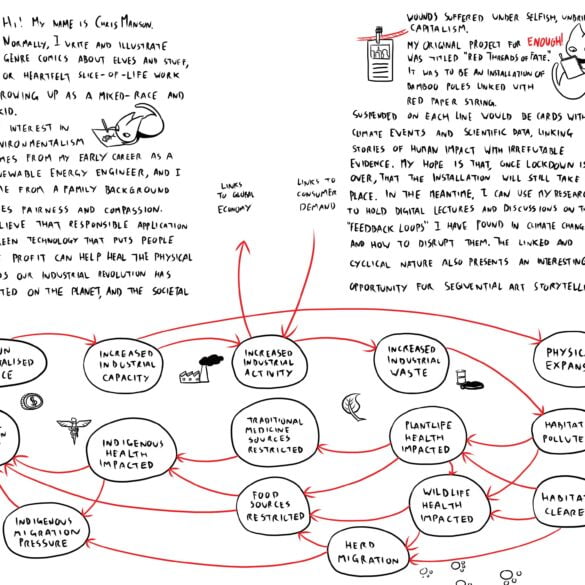 HI! MY NAME IS CHRIS MANSON.
NORMALLY, I WRITE AND ILLUSTRATE
GENRE COMICS ABOUT ELVES AND STUFF,
OR HEARTFELT SLICE-OF-LIFE WORK
ROWING UP AS A MIXED-RACE AND
KID.
INTEREST IN
VIRONMENTALISM
MES FROM MY EARLY CAREER AS A
NEWABLE ENERGY ENGINEER, AND I
ME FROM A FAMILY BACKGROUND
ES FAIRNESS AND COMPASSION.
LIEVE THAT RESPONSIBLE APPLICATION
REEN TECHNOLOGY THAT PUTS PEOPLE
PROFIT CAN HELP HEAL THE PHYSICAL
DS OUR INDUSTRIAL REVOLUTION HAS
TED ON THE PLANET, AND THE SOCIETAL
WOUNDS SUFFERED UNDER SELFISH, UNBRI
CAPITALISM.
MY ORIGINAL PROJECT FOR ENOUGH!
WAS TITLED "RED THREADS OF FATE."
IT WAS TO BE AN INSTALLATION OF
BAMBOO POLES LINKED WITH
RED PAPER STRING.
SUSPENDED ON EACH LINE WOULD BE CARDS WITH
CLIMATE EVENTS AND SCIENTIFIC DATA, LINKING
STORIES OF HUMAN IMPACT WITH IRREFUTABLE
EVIDENCE. MY HOPE IS THAT, ONCE LOCKDOWN IS
OVER, THAT THE INSTALLATION WILL STILL TAKE
PLACE. IN THE MEANTIME, I CAN USE MY RESEAR
TO HOLD DIGITAL LECTURES AND DISCUSSIONS ON T
"FEEDBACK LOOPS" I HAVE FOUND IN CLIMATE CHANG
AND HOW TO DISRUPT THEM. THE LINKED AND
CYCLICAL NATURE ALSO PRESENTS AN INTERESTING
OPPORTUNITY FOR SEQUENTIAL ART STORYTELLI
LINKS
TO GLOBAL
ECONOMY
LINKS TO
CONSUMER
DEMAND
INCREASED
INDUSTRIAL
CAPACITY
INCREASED
INDUSTRIAL
ACTIVITY
INCREASED
INDUSTRIAL
WASTE
PHYSIC
EXPANS
INDIGENOUS
HEALTH
IMPACTED
TRADITIONAL
MEDICINE
SOURCES
RESTRICTED
PLANTLIFE
HEALTH
IMPACTED
HABITA
POLLUTE
INDIGENOUS
MIGRATION
PRESSURE
FOOD
SOURCES
RESTRICTED
WILDLIFE
HEALTH
IMPACTED
HABITA
CLEARE
HERD
MIGRATION